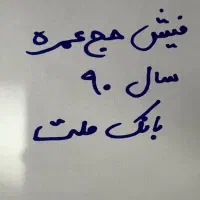 فیش حج عمره
سال ۹۰
بانک ملت